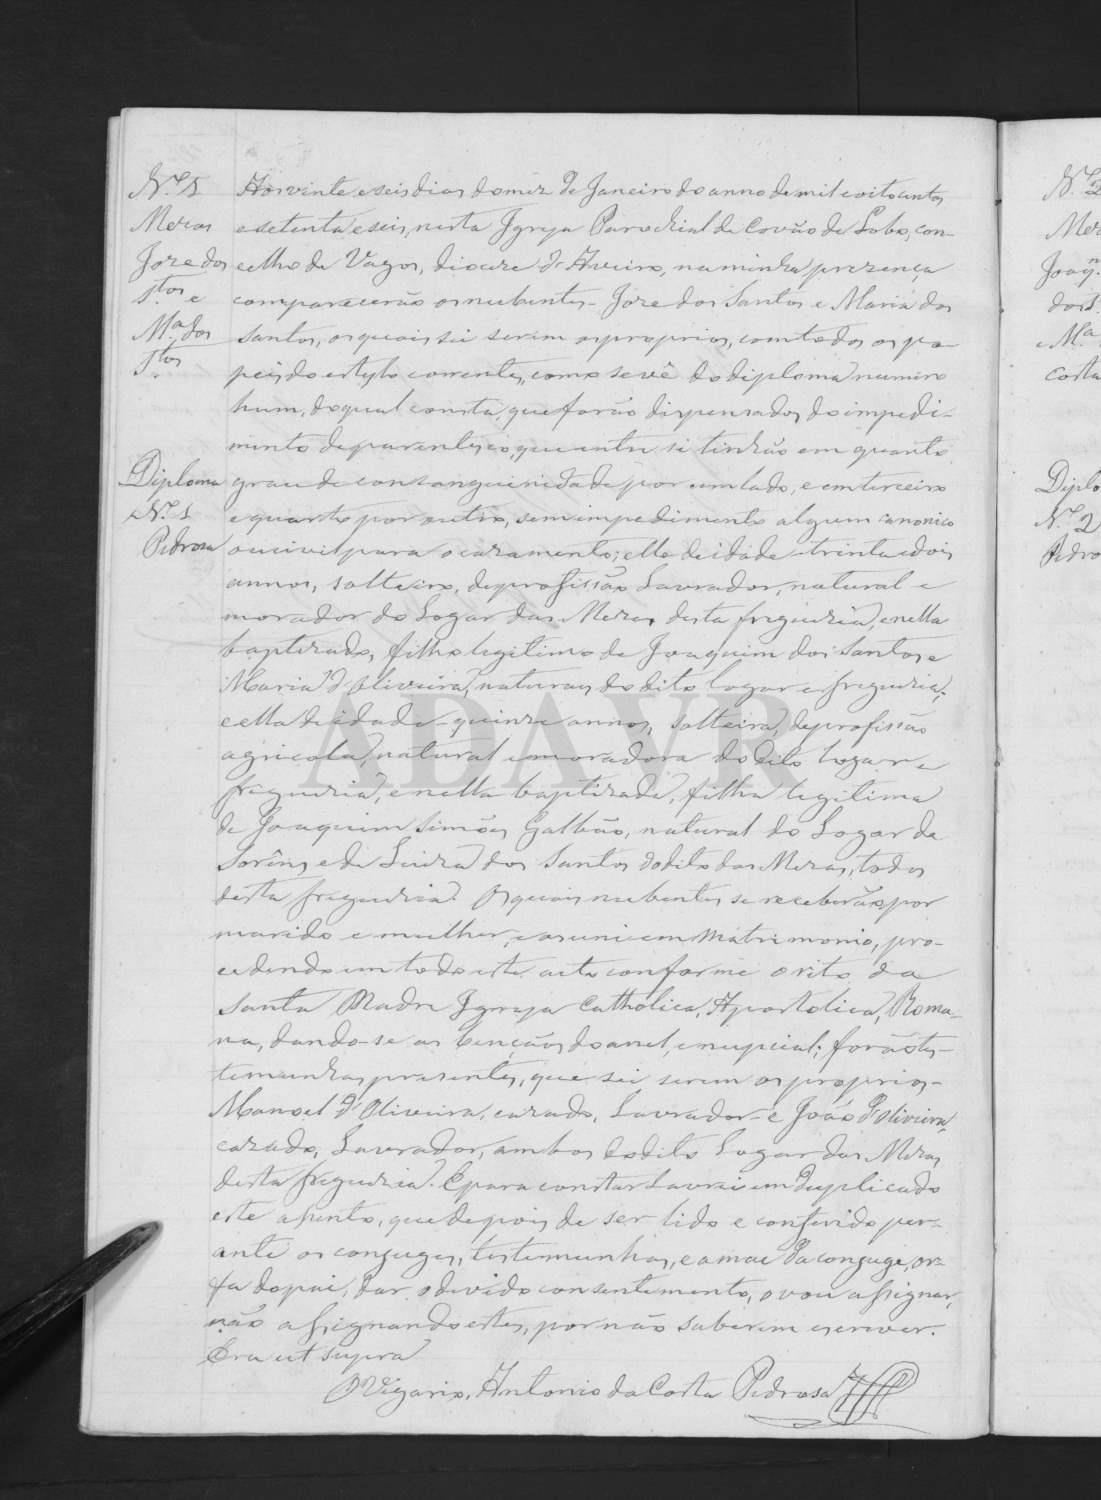 N.º 1
Mezas
Joze dos
S.tos e
M.a dos
S.tos
Diploma
N.º 1
Pedrosa
Aos vinte e seis dias do mez de Janeiro do anno de mil e oito centos
e setenta e seis, nesta Igreja Parochial de Covão do Lobo, con-
celho de Vagos, diocese d'Aveiro, na minha prezença
comparecerão os nubentes - Joze dos Santos e Maria dos
Santos, os quais sei serem os proprios, com todos os pa-
peis do estylo correntes, como se vê do diploma numero
hum, do qual consta, que forão dispensados do impedi-
mento de parentesco, que entre si tinhão em quarto
grau de consanguinidade por um lado, e em terceiro
e quarto por outro, sem impedimento algum canonico
ou civil para o cazamento; elle de idade - trinta e dois
annos, solteiro, de profissão Lavrador, natural e
morador do Logar das Mezas desta freguezia, e nella
baptizado, filho legitimo de Joaquim dos Santos e
Maria d'Oliveira, naturaes do dito logar e freguezia;
e ella de idade - quinze annos, solteira, de profissão
agricola, natural e moradora do dito logar e
freguezia, e nella baptizada, filha legitima
de Joaquim Simões Galbão, natural do Logar de
Sorêns e de Luiza dos Santos do dito das Mezas, todos
desta freguezia. Os quais nubentes se receberão por
marido e mulher, e os uni em Matrimonio, pro-
cedendo em todo este acto conforme o rito da
Santa Madre Igreja Catholica, Apostolica, Roma-
na, dando-se as bençãos do anel, e nupcial; forão tes-
temunhas prezentes, que sei serem os proprios -
Manoel d'Oliveira, cazado, Lavrador - e João d'Oliveira,
cazado, Lavrador, ambos do dito Logar das Mezas
desta freguezia. E para constar lavrei em duplicado
este assento, que depois de ser lido e conferido per-
ante os conjuges, testemunhas, e a mae da conjuge, or-
fa do pai, dar o devido consentimento, o vou assignar,
não assignando estes, por não saberem escrever.
Era ut supra
O Vigario, Antonio da Costa Pedrosa
N.º 2
Mez
Joaq.m
dos S.
e M.a
Costa
Diplo
N.º 2
Pedro
ADAVR